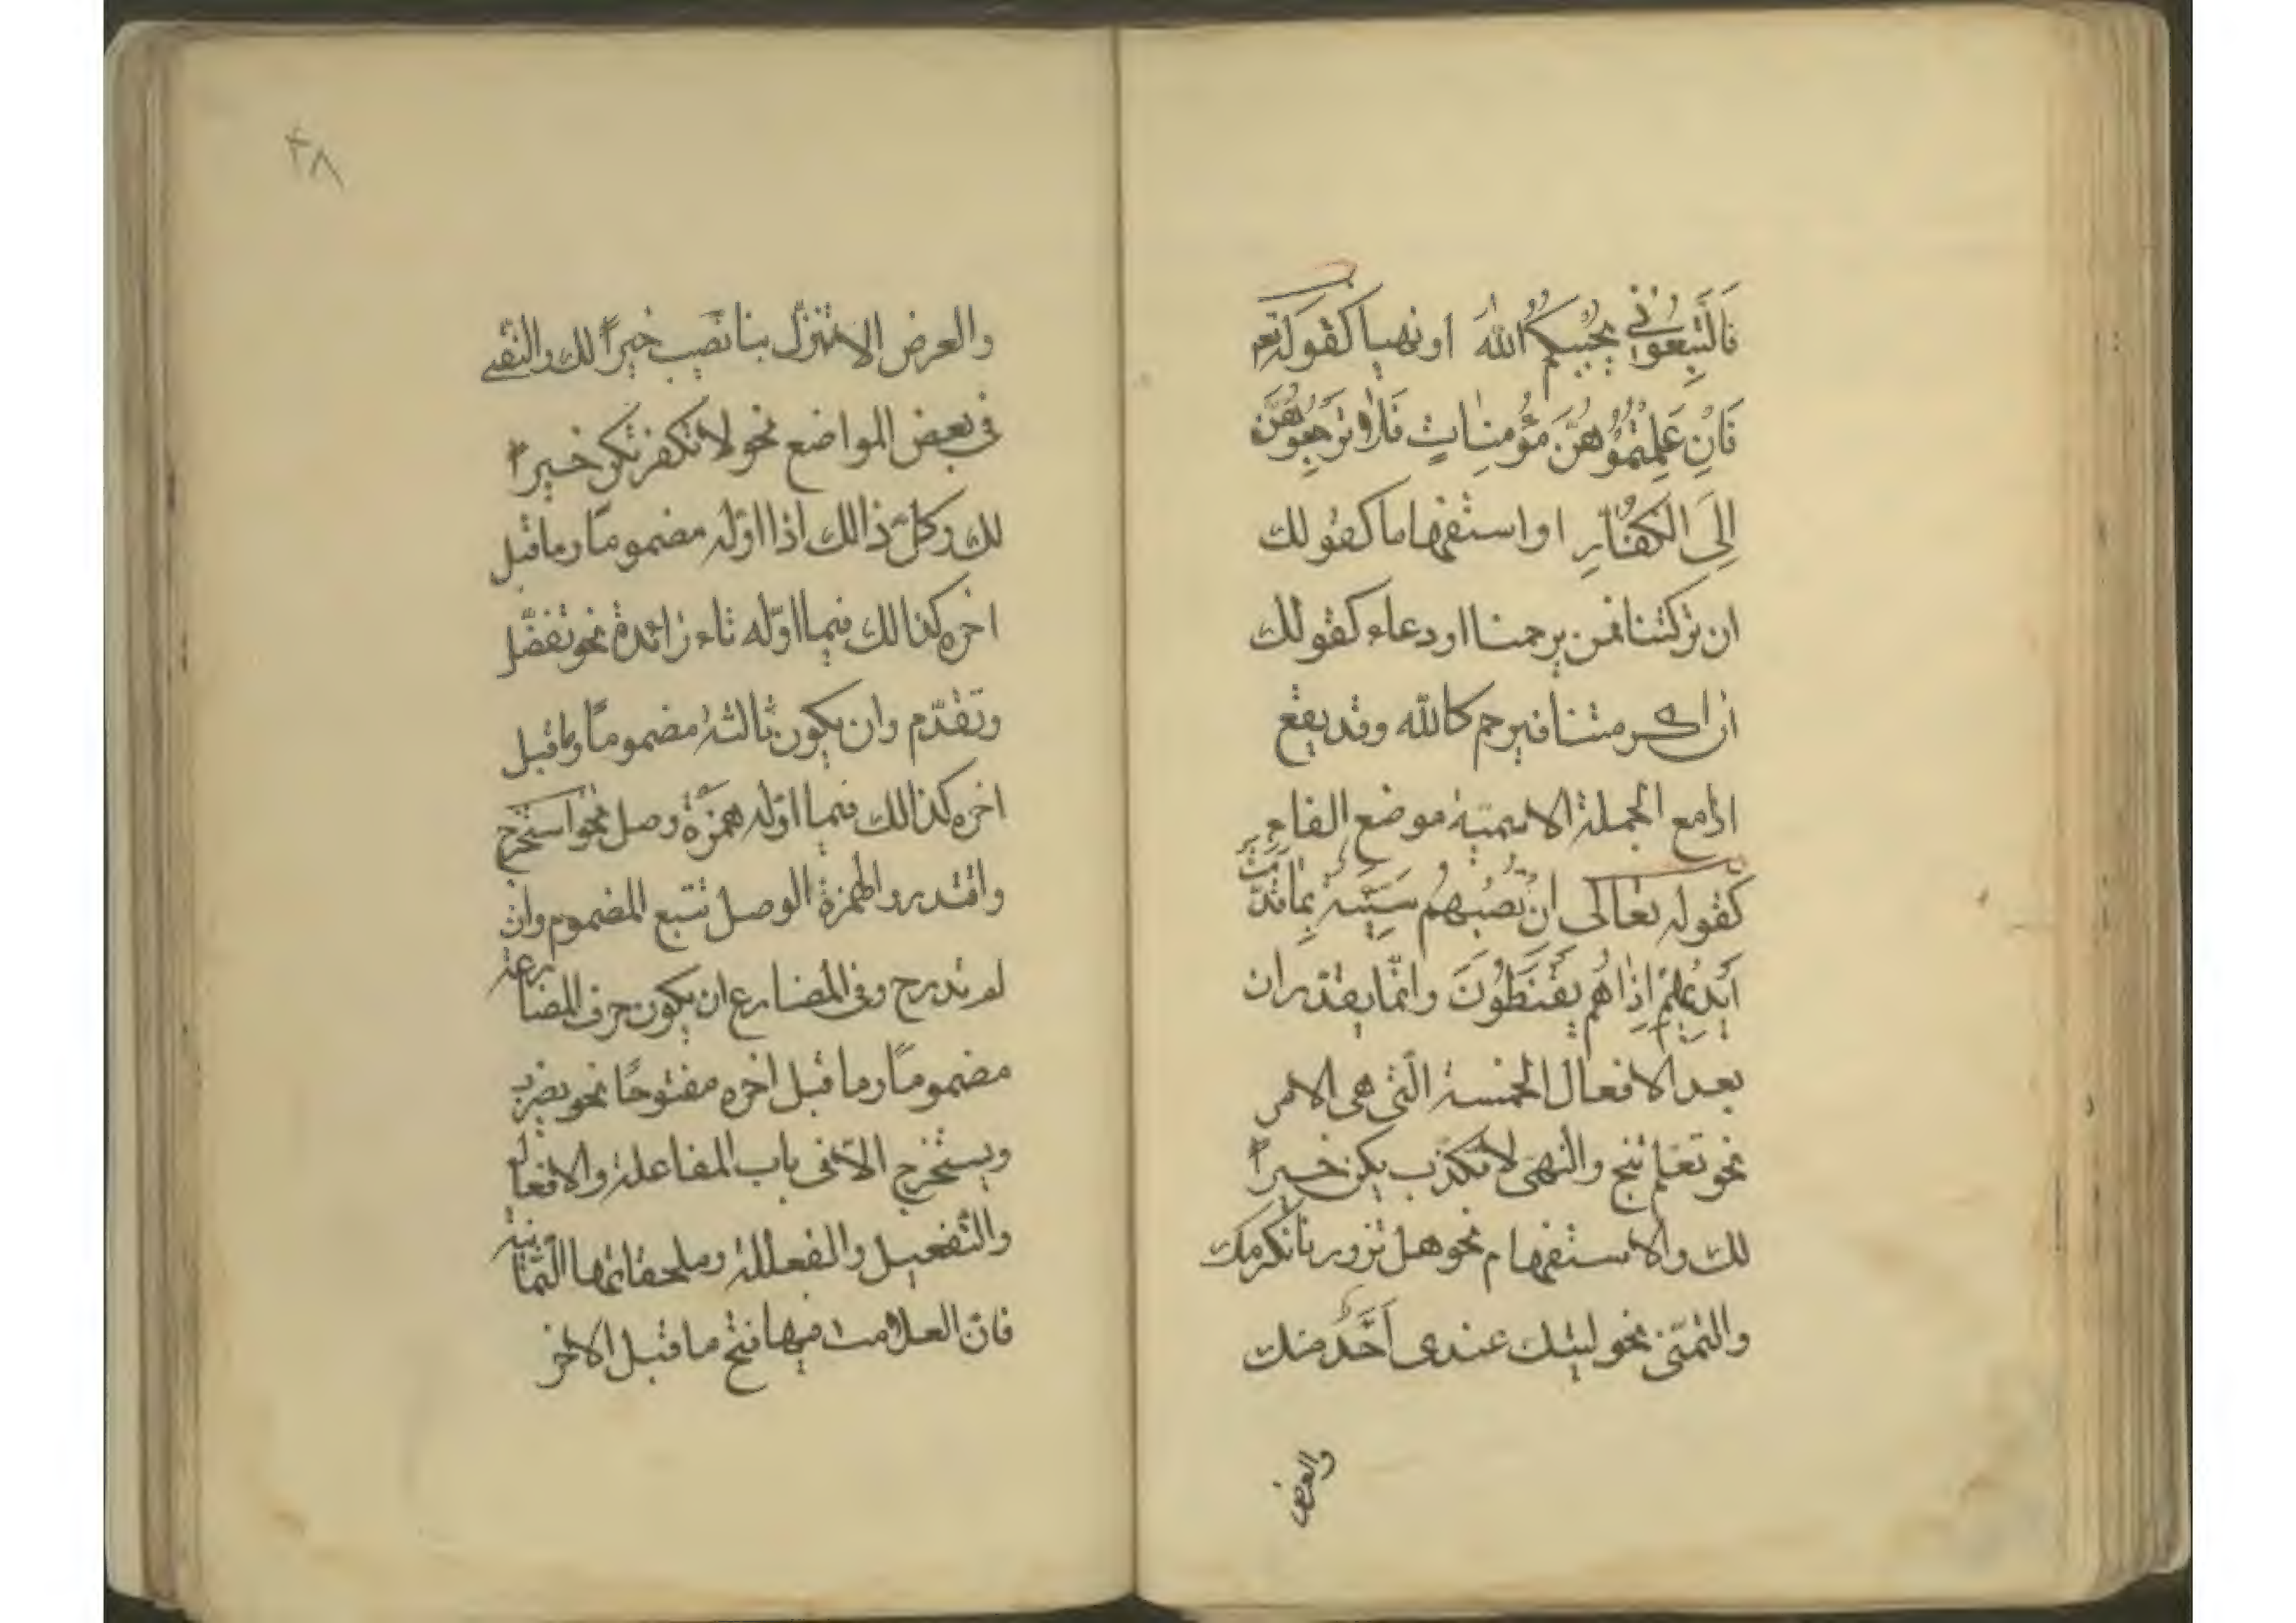 فَالتَّبِعُوْنِى يُحْبِبْكُمُ اللّٰهُ او نهيا كقوله تعم
فَاِنْ عَلِمْتُمُوْهُنَّ مُؤْمِنَاتٍ فَلَا تَرْجِعُوْهُنَّ
اِلَى الْكُفَّارِ او استفهاما كقولك
ان تركتنا فمن يرحمنا او دعاء كقولك
ان اكرمتنا فيرحمكالله وقد يقع
اذا مع الجملة الاسميّة موضع الفاء
كقوله تعالى اِنْ تُصِبْهُمْ سَيِّئَةٌ بِمَا قَدَّمَتْ
اَيْدِيْهِمْ اِذَا هُمْ يَقْنَطُوْنَ وانّما يقدّر ان
بعد الافعال الخمسة الّتى هى الامر
نحو تعلم تنج والنهى لا تكذب يكن خيراً
لك والاستفهام نحو هل تزورنا نكرمك
والتمنّى نحو ليتك عندى اَخْدُمك
والعرض
٤٨
والعرض الا تنزل بنا تصب خيراً لك والنفى
فى بعض المواضع نحو لا تكفر تكن خيراً
لك وكلّ ذالك اذا اوّله مضموما وما قبل
اخره كذالك فيما اوّله تاء زائدة نحو تفضّل
وتقدّم وان يكون ثالثه مضموماً وما قبل
اخره كذالك فيما اوّله همزة وصل نحو استخرج
واقتدر والهمزة الوصل تتبع المضموم وان
لم تدرج وفى المضارع ان يكون حرف المضارعة
مضموماً وما قبل اخره مفتوحاً نحو يضرب
ويستخرج الّا فى باب المفاعلة والافعال
والتفعيل والفعللة وملحقاتها الثمانية
فانّ العلامت فيها فتح ما قبل الاخر